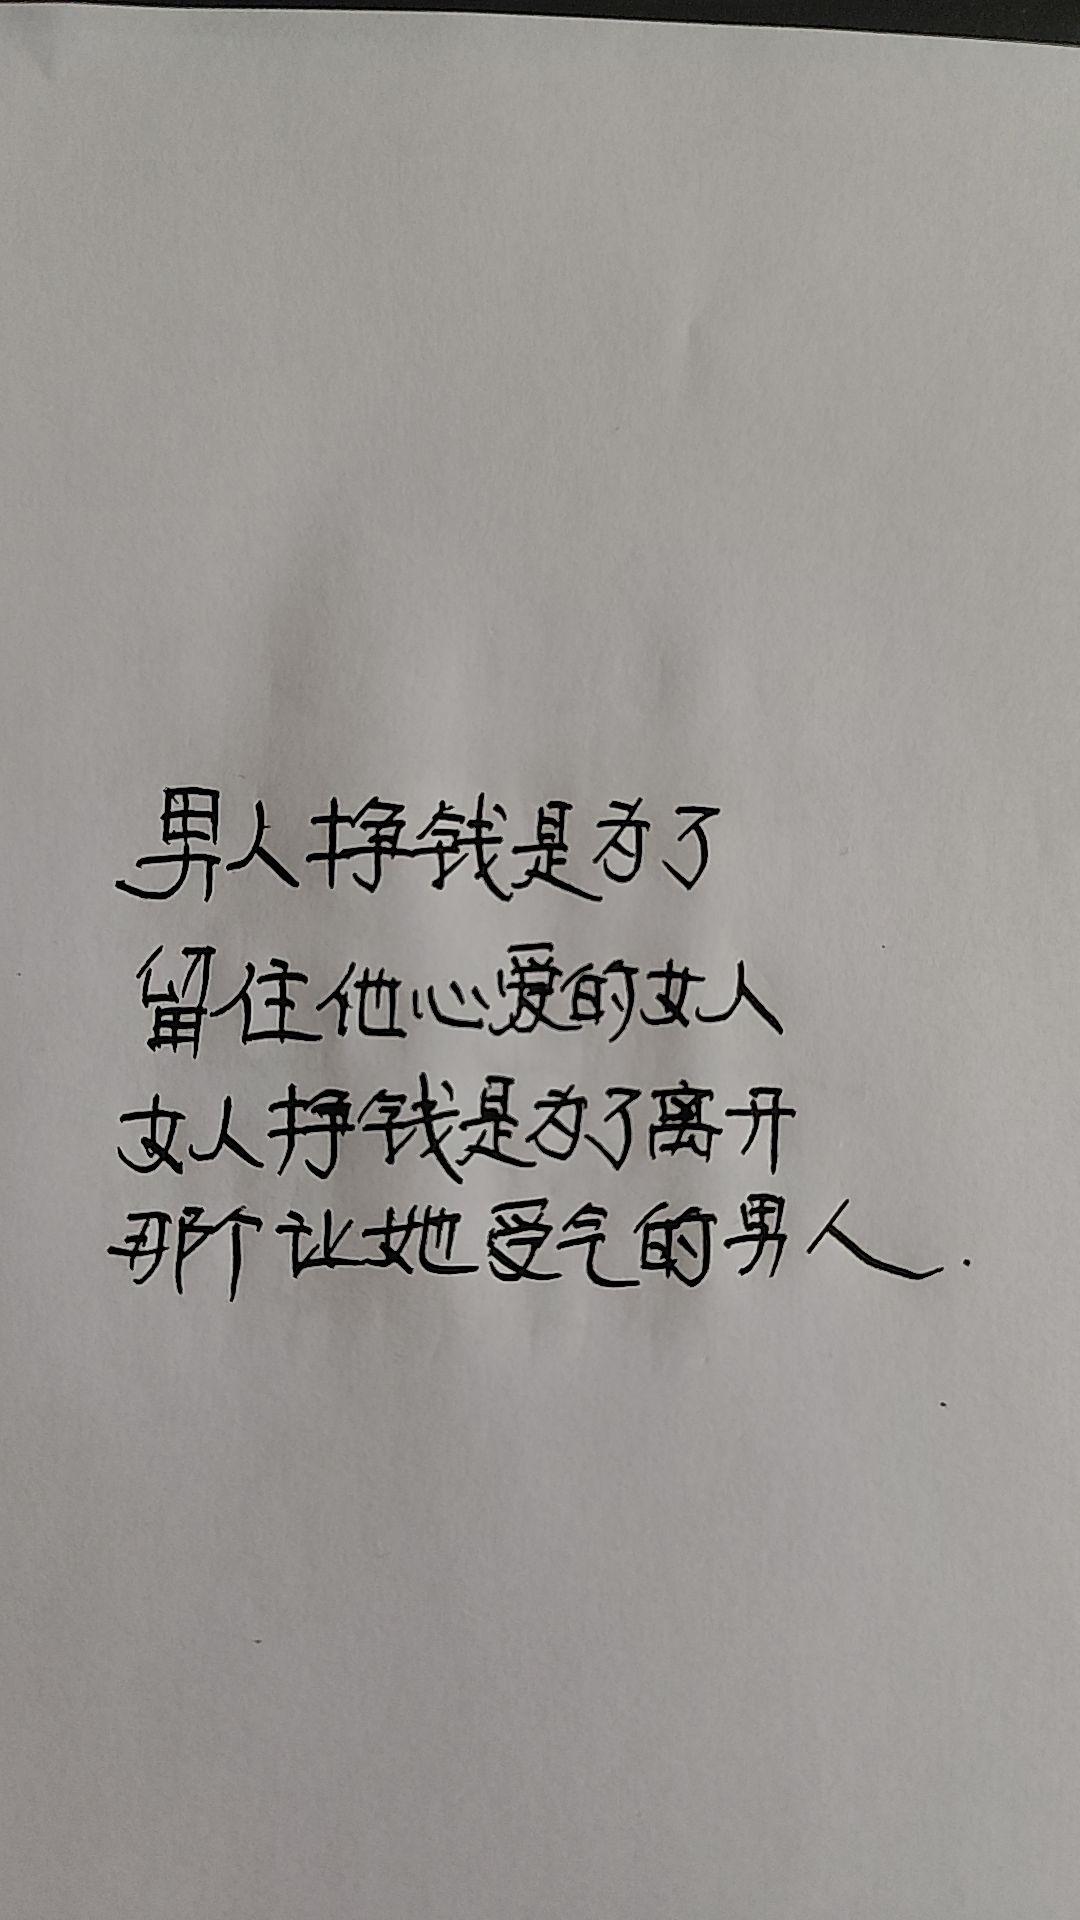 男人挣钱是为了
留住他心爱的女人
女人挣钱是为了离开
那个让她受气的男人.